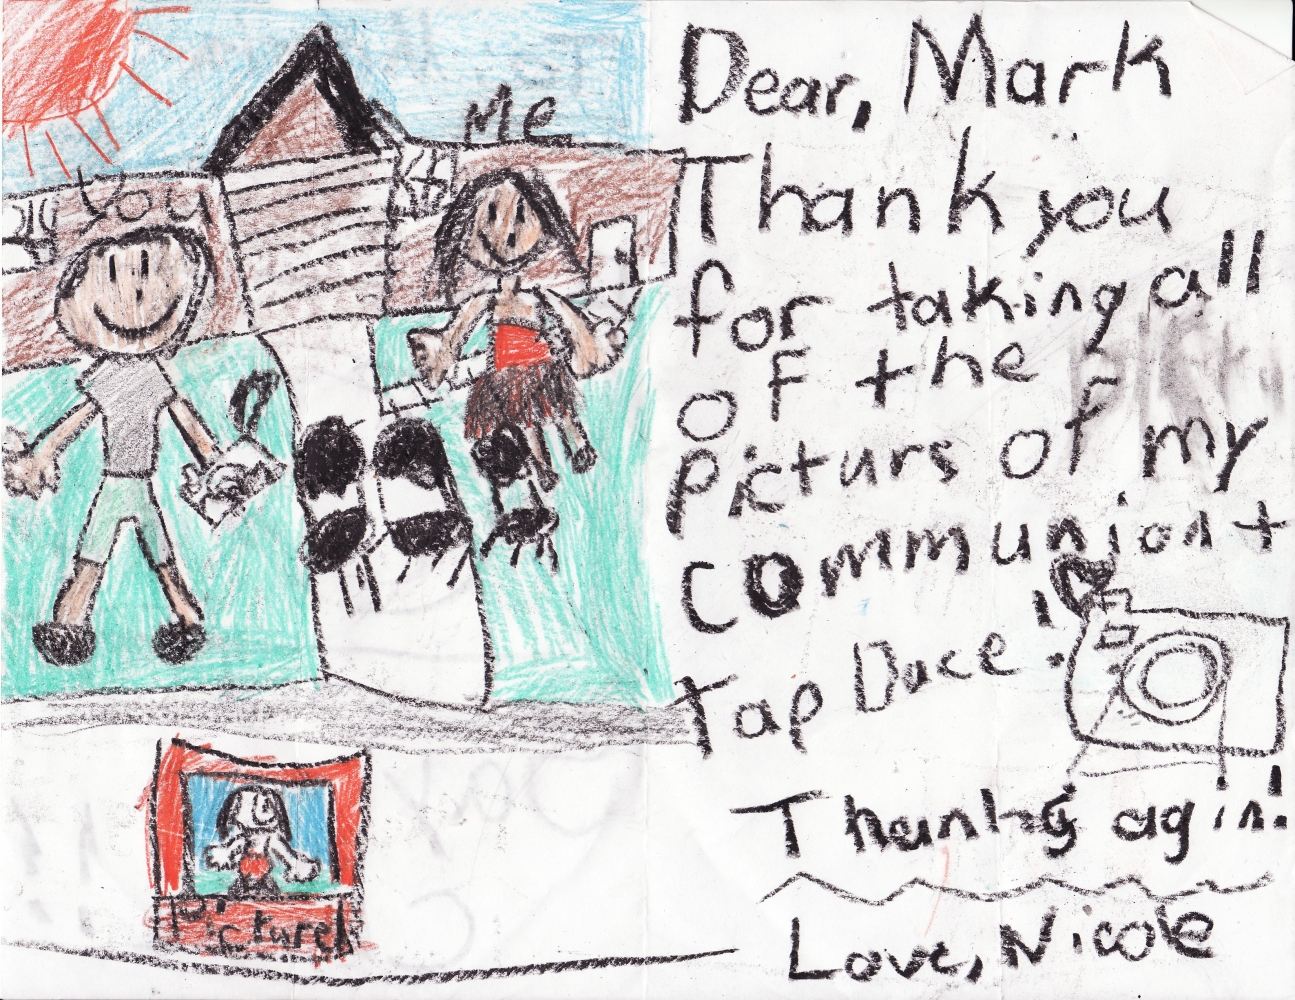 You
Me
Picture!
Dear, Mark
Thank you
for taking all
of the
picturs of my
communion +
Tap Dace!
Thanks agin!
Love, Nicole